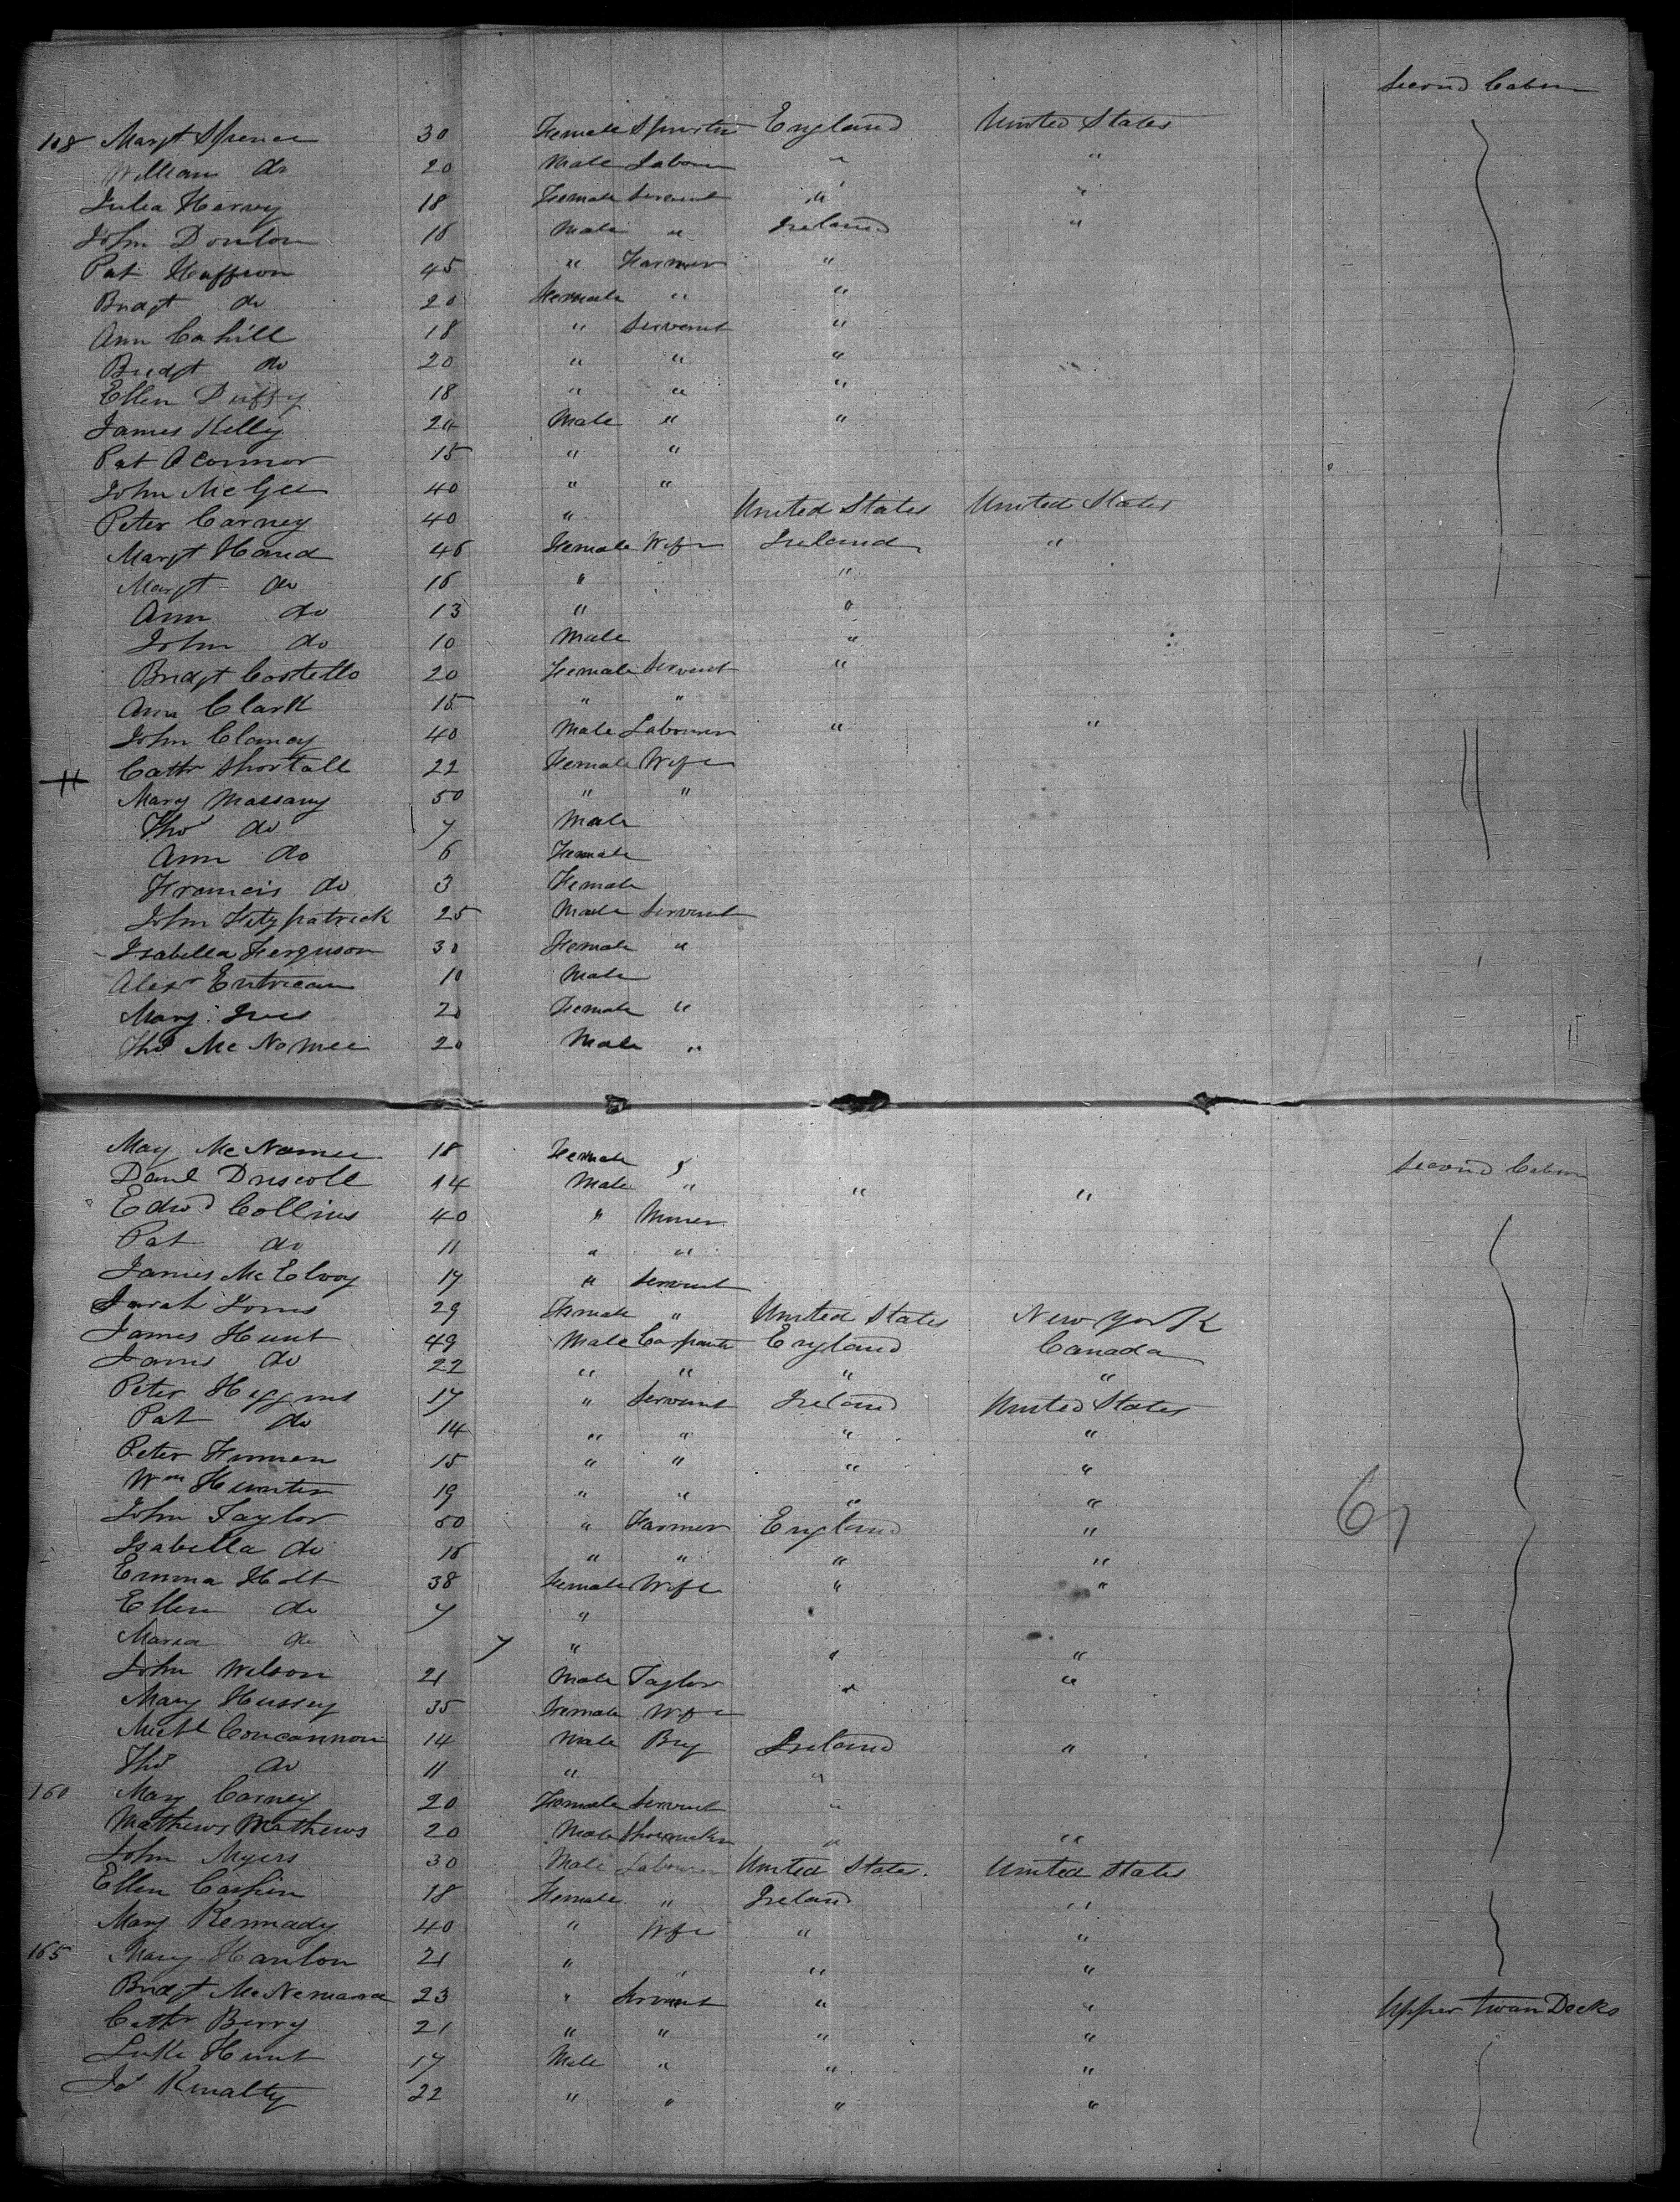 Second Cabin
108 Margt Spence 30 Female Spinster England United States
William do 20 Male Labour " "
Julia Harvey 18 Female Servant " "
John Donlon 16 Male " Ireland "
Pat Heffron 45 " Farmer "
Bridgt do 20 Female " "
Ann Cahill 18 " Servant "
Bridgt do 20 " " "
Ellen Duffy 18 " " "
James Kelly 24 Male " "
Pat OConnor 15 " "
John McGee 40 " "
Peter Carney 40 " United States United States
Margt Hand 46 Female Wife Ireland "
Margt do 16 " "
Ann do 13 " "
John do 10 Male "
Bridgt Costello 20 Female Servant "
Ann Clark 15 " "
John Clancy 40 Male Labourer " "
Cathr Shortall 22 Female Wife
Mary Massany 50 " "
Thos do 7 Male
Ann do 6 Female
Francis do 3 Female
John Fitzpatrick 25 Male Servant
Isabella Ferguson 30 Female "
Alexr Entrican 10 Male
Mary Ives 20 Female "
Thos McNamee 20 Male "
May McNamee 18 Female " Second Cabin
Danl Driscoll 14 Male " " "
Edwd Collins 40 " Miner
Pat do 11 " "
James McElvoy 17 " Servant
Sarah Jones 29 Female " United States New York
James Hunt 49 Male Carpenter England Canada
James do 22 " " " "
Peter Higgins 17 " Servant Ireland United States
Pat do 14 " " " "
Peter Finnen 15 " " " "
Wm Hunter 19 " " " "
John Taylor 50 " Farmer England "
Isabella do 16 " " " "
Emma Holt 38 Female Wife " "
Ellen do 7 "
Maria do 7 " " "
John Wilson 21 Male Taylor " "
Mary Hussey 35 Female Wife
Michl Concannon 14 Male Boy Ireland "
Thos do 11 " "
160 Mary Carney 20 Female Servant "
Mathews Mathews 20 Male Shoemaker " "
John Myers 30 Male Labourer United States United States
Ellen Cashin 18 Female " Ireland "
Mary Kennady 40 " Wife " "
165 Mary Hanlon 21 " " " "
Bridgt McNemara 23 " Servant " " Upper Twan Decks
Cathr Berry 21 " " " "
Luke Hunt 17 Male " " "
Js Kinalty 22 " " " "